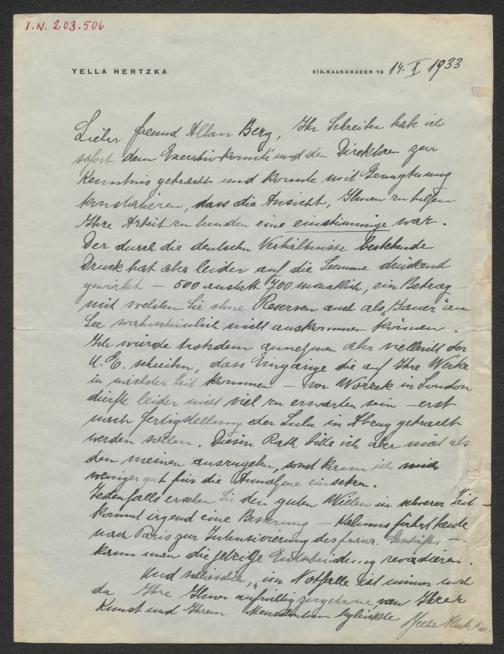 I.N. 203.506
YELLA HERTZKA
XIX, KAASGRABEN 19 14. X 1933
Lieber Freund Alban Berg, Ihr Schreiben habe ich
sofort dem Executivkomité und den Direktoren zur
Kenntnis gebracht und konnte mit Genugtuung
konstatieren, dass die Ansicht, Ihnen zu helfen
Ihre Arbeit zu eine einstimmige war.
Der durch die deutschen Verhältnisse bestehende
Druck hat aber leider auf die Summe drückend
gewirkt – 500 anstatt 700 monatlich, ein Betrag
mit welchem Sie ohne Reserven auch als "Bauer" am
See wahrscheinlich nicht auskommen können.
Ich würde trotzdem annehmen aber vielleicht der
U.E. schreiben, dass Eingänge die auf Ihre Werke
in nächster Zeit kommen – von Wozzek in London
dürfte leider nicht viel zu erwarten sein – erst
nach Fertigstellung der Lulu in Abzug gebracht
werden sollen. Diesen Rath bitte ich aber nicht als
den meinen auszugeben, sonst kann ich mich
weniger gut für die Annahme einsetzen.
Jedenfalls ersehen Sie den guten Willen in schwerer Zeit –
kommt irgend eine Besserung – Kalmus fährt heute
nach Paris zur Intensivierung des franz. Geschäftes –
kann man die jetzige Entscheidung revidieren.
Und schliesslich, "im Notfalle" ist immer noch
da Ihre Ihnen aufrichtig zugethane, von Ihrer
Kunst und Ihrem Menschentum beglückte Yella Hertzka